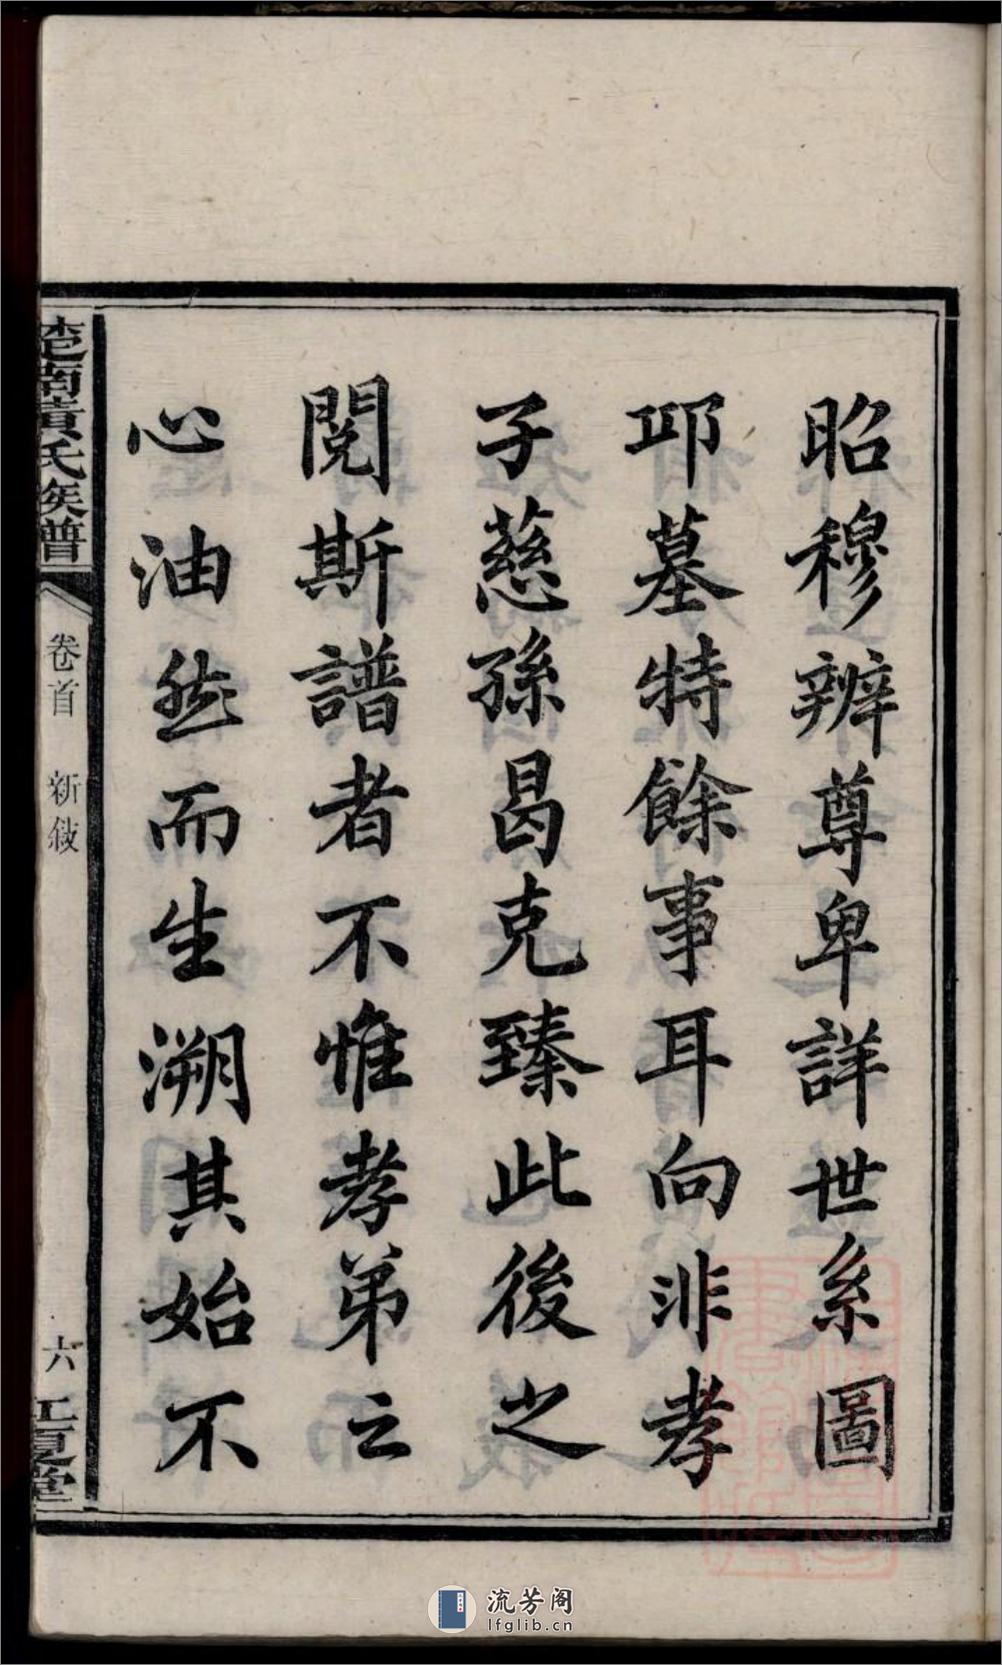 昭穆辨尊卑詳世系圖
邛墓特餘事耳向非孝
子慈孫曷克臻此後之
閱斯譜者不惟孝弟之
心油然而生溯其始不
楚南黃氏族譜
卷首 新敍
六
江夏堂
流芳阁
lfglib.cn